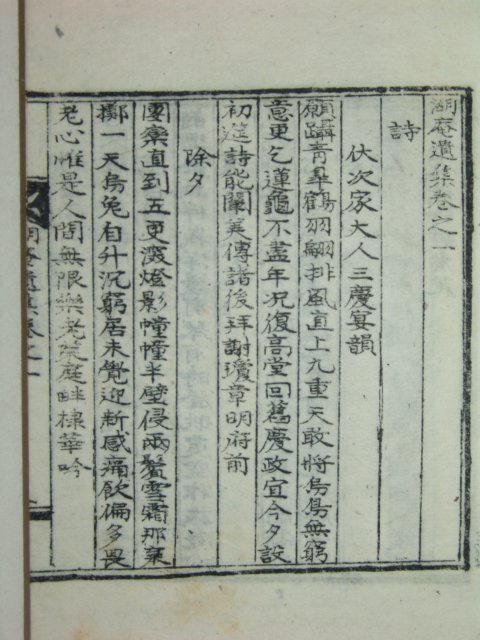 湖庵遺集卷之一
詩
伏次家大人三慶宴韻
願躡靑皐鶴羽翩排風直上九重天敢將烏鳥無窮
意更乞蓮龜不盡年况復高堂回舊慶政宜今夕設
初筵詩能闡美傳諸後拜謝瓊章明府前
除夕
團欒直到五更㴱燈影幢幢半壁侵兩鬢雪霜那棄
擲一天烏兔自升沉窮居未覺迎新感痛飮偏多畏
老心惟是人間無限樂老萊庭畔棣華吟
湖庵遺集卷之一
一